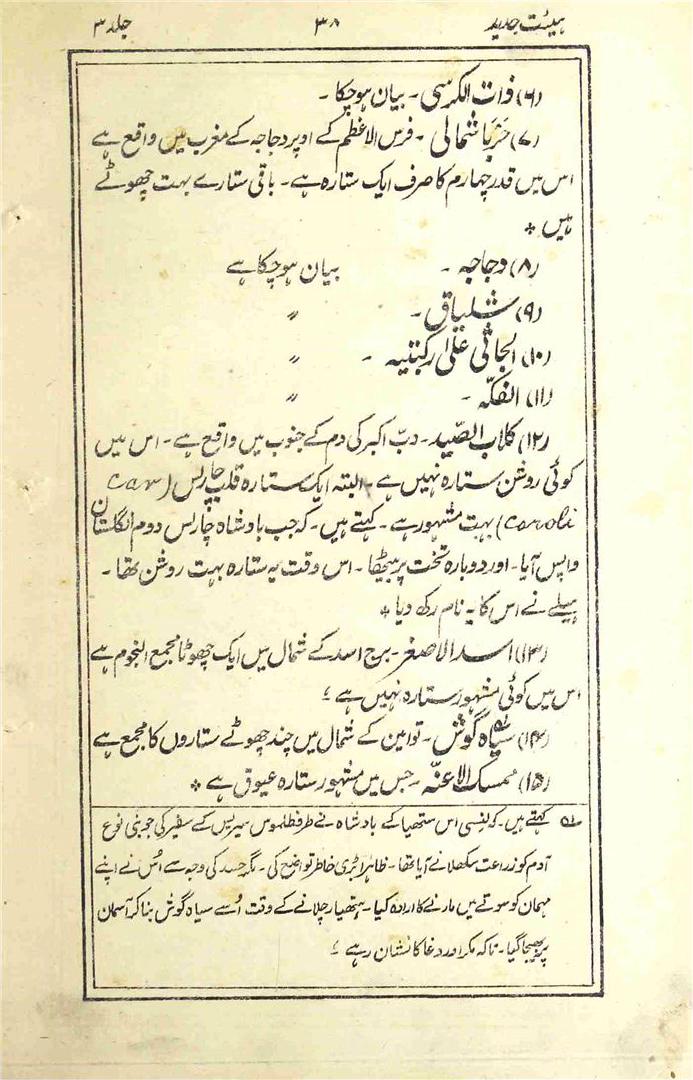 ہیئت جدید ۳۸ جلد ۳
(۶) ذات الکرسی - بیان ہوچکا -
(۷) حَرْبَا شمالی - فرس الاعظم کے اوپر دجاجہ کے مغرب میں واقع ہے
اس میں قدر چہارم کا صرف ایک ستارہ ہے - باقی ستارے بہت چھوٹے
ہیں *
(۸) دجاجہ - بیان ہوچکا ہے
(۹) شلیاق - 〃
(۱۰) الجاثی علیٰ رکبتیہ - 〃
(۱۱) الفکّہ - 〃
(۱۲) کلاب الصّید - دبّ اکبر کی دم کے جنوب میں واقع ہے - اس میں
کوئی روشن ستارہ نہیں ہے - البتہ ایک ستارہ قلب چارلس (Car
Caroli) بہت مشہور ہے - کہتے ہیں - کہ جب بادشاہ چارلس دوم انگلستان
واپس آیا - اور دوبارہ تخت پر بیٹھا - اس وقت یہ ستارہ بہت روشن تھا -
ہیلے نے اس کا یہ نام رکھ دیا *
(۱۳) اسد الاصغر - برج اسد کے شمال میں ایک چھوٹا مجمع النجوم ہے
اس میں کوئی مشہور ستارہ نہیں ہے ؛
(۱۴) سیاہ گوش ؎۱ - توامین کے شمال میں چند چھوٹے ستاروں کا مجمع ہے
(۱۵) ممسک الاعنّہ - جس میں مشہور ستارہ عیوق ہے *
؎۱ کہتے ہیں - کہ لنسی اس ستھیا کے بادشاہ نے طرفطلموس سیریس کے سفیر کی جو بنی نوع
آدم کو زراعت سکھلانے آیا تھا - ظاہرا بڑی خاطر تواضع کی - مگر حسد کی وجہ سے اُس نے اپنے
مہمان کو سوتے میں مارنے کا ارادہ کیا - ہتھیار چلانے کے وقت اُسے سیاہ گوش بنا کر آسمان
پر بھیجا گیا - تاکہ مکر اور دغا کا نشان رہے ؛